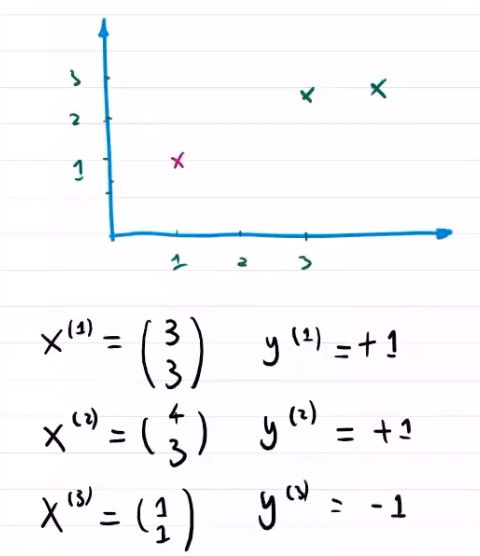 3
2
1
1 2 3
x⁽¹⁾ = (3 3) y⁽¹⁾ = +1
x⁽²⁾ = (4 3) y⁽²⁾ = +1
x⁽³⁾ = (1 1) y⁽³⁾ = -1